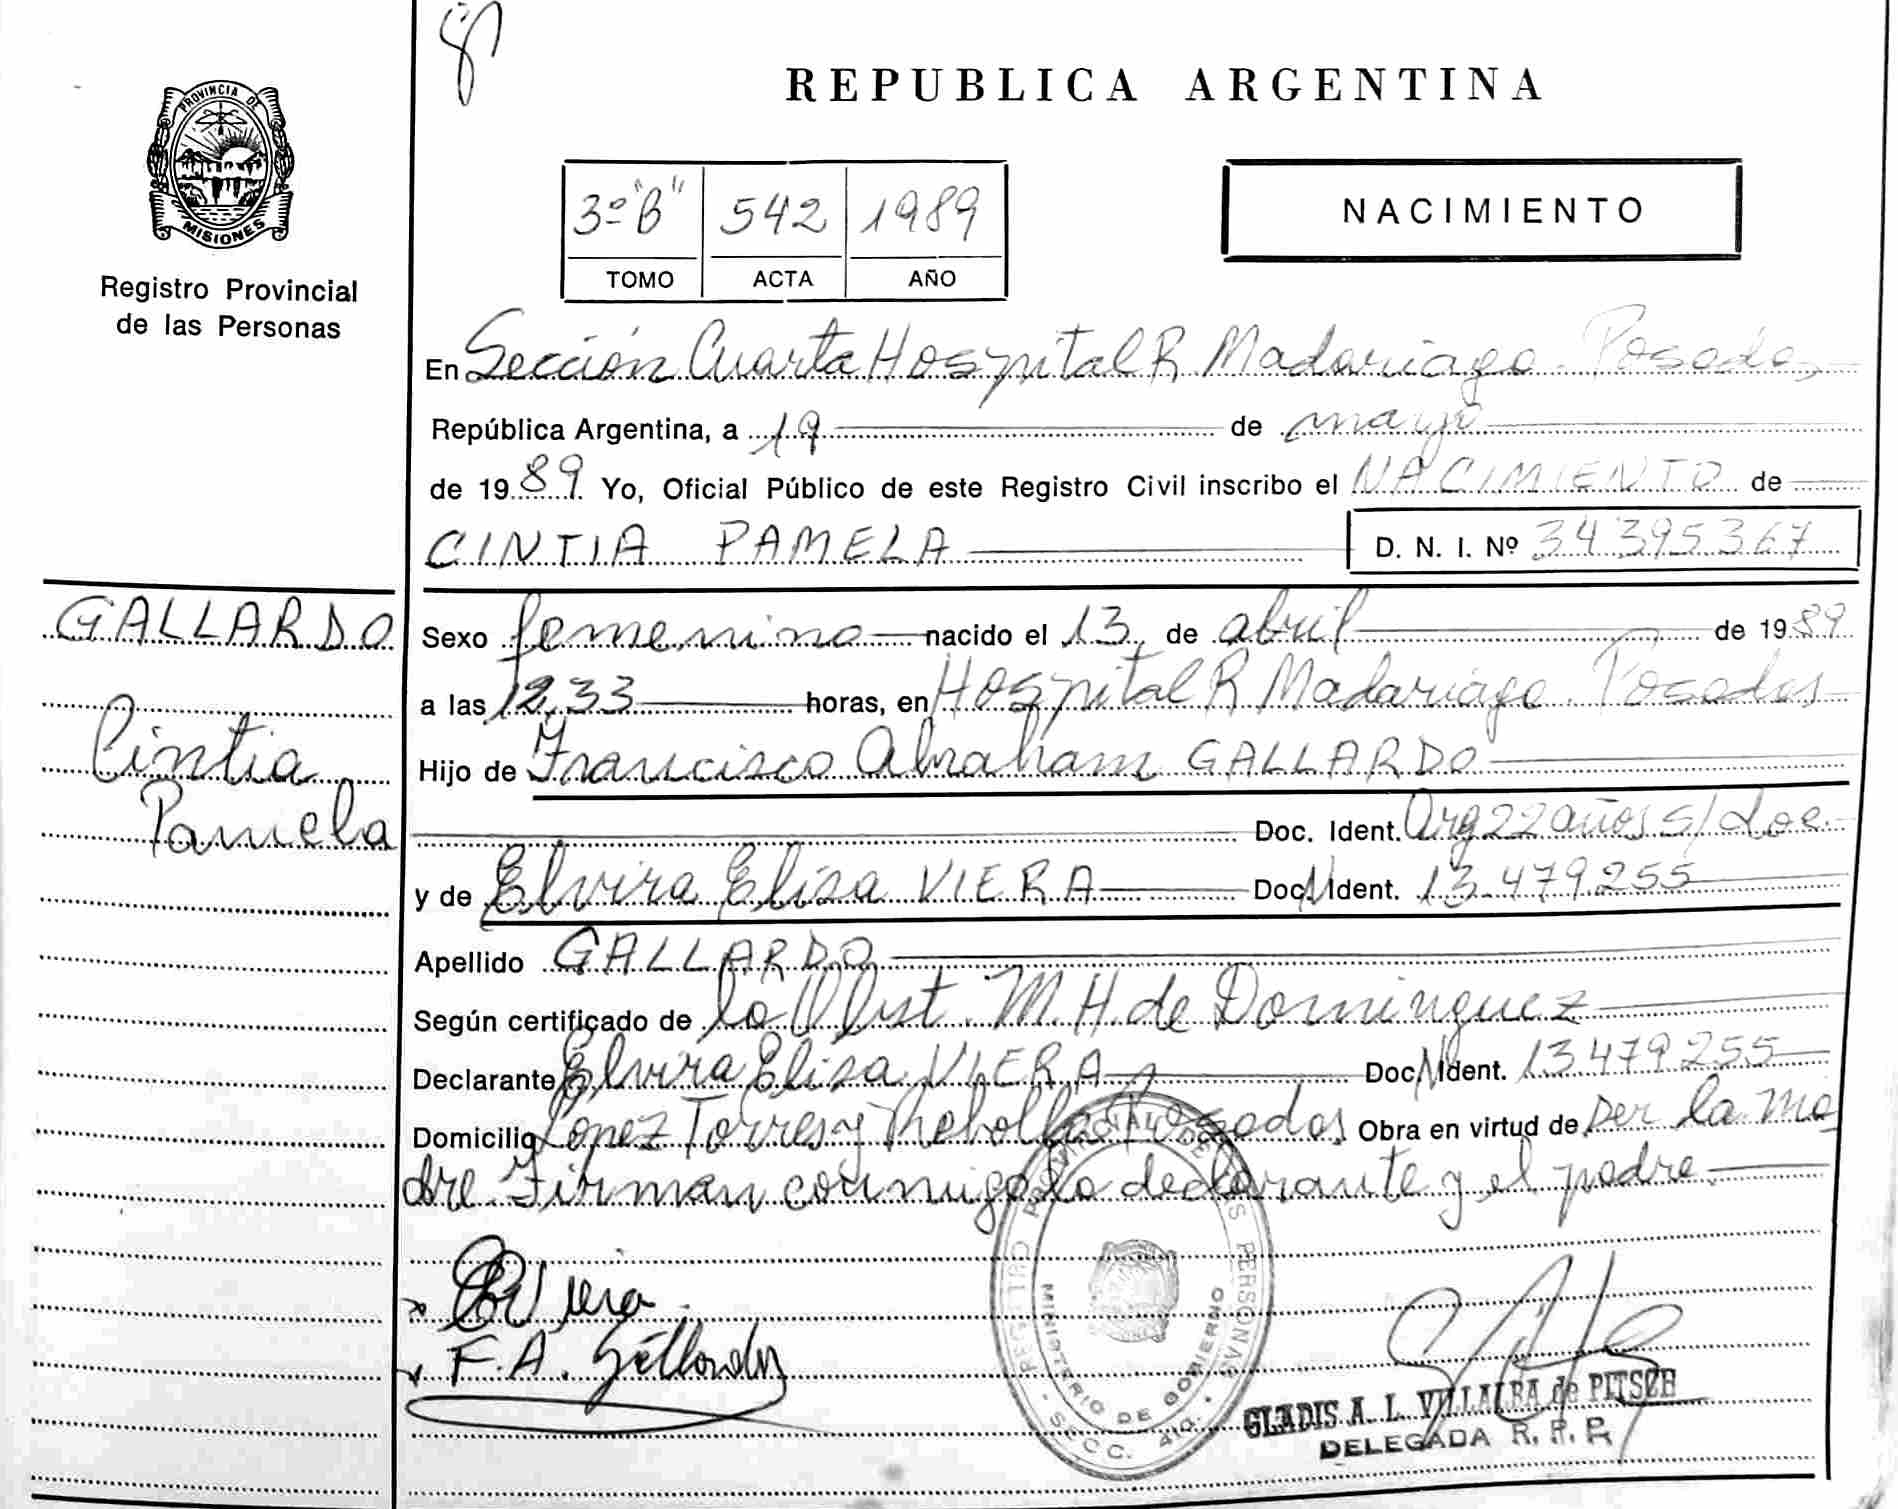 REPUBLICA ARGENTINA
PROVINCIA DE MISIONES
Registro Provincial
de las Personas
3º "B" 542 1989
TOMO ACTA AÑO
NACIMIENTO
En Sección Cuarta Hospital R Madariaga. Posadas
República Argentina, a 19 de mayo
de 1989 Yo, Oficial Público de este Registro Civil inscribo el NACIMIENTO de
CINTIA PAMELA D. N. I. Nº 34395367
GALLARDO
Cintia
Pamela
Sexo femenino nacido el 13 de abril de 1989
a las 12,33 horas, en Hospital R Madariaga. Posadas
Hijo de Francisco Abraham GALLARDO
Doc. Ident. Arg 22 años s/doc.
y de Elvira Elisa VIERA Doc. Ident. 13.479.255
Apellido GALLARDO
Según certificado de la Obst. M. H. de Dominguez
Declarante Elvira Elisa VIERA Doc. Ident. 13.479.255
Domicilio López Torres y Posadas Obra en virtud de ser la ma
dre. Firman conmigo la declarante y el padre.
Viera
F. A. Gallardo
REGISTRO PROVINCIAL DE LAS PERSONAS
MINISTERIO DE GOBIERNO
SECC. 4ta.
GLADIS A. L. VILLALBA de PITSCH
DELEGADA R. P. P.